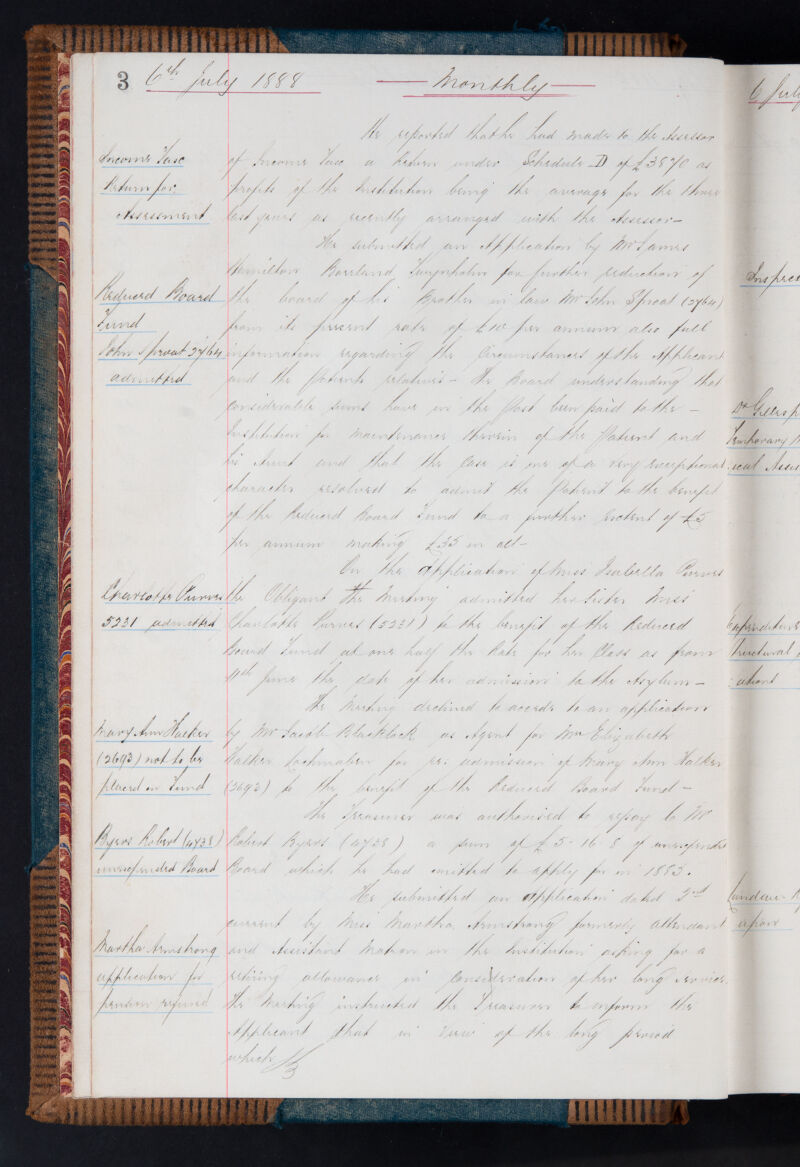 3 6th July 1888 Monthly
Income Tax
Return for
Assessment
He reported that he had made to the Assessor
of Income Tax a Return under Schedule D of £3870 as
profits of the Institution being the average for the three
last years as recently arranged with the Assessor—
He submitted an Application by Mr James
Reduced Board
Fund
John Sproat 2764
admitted
Hamilton Borland for further reduction of
the board of his Brother in law Mr John Sproat (2764)
from its present rate of per annum also full
information regarding the Circumstances of the Applicant
and the Patients relatives— The Board understanding that
considerable sums have in the past been paid to the —
Institution for maintenance therein of the Patient and
his Aunt and that the Case is one of a very exceptional
character resolved to admit the Patient to the benefit
of the Reduced Board Fund to a further extent of £5
per annum making £35 in all—
On the Application of Miss Isabella Purves
Charlotte Purves
5231 admitted
the Obligant the Meeting admitted her Sister Miss
Charlotte Purves (5231) to the benefit of the Reduced
Board Fund at one half the Rate for her Class as from
11th June the date of her admission to the Asylum—
The Meeting declined to accede to an application
Mary Ann Halker
(2693) not to be
placed on Fund
by Mr Jacob Blacklock as Agent for Mrs Elizabeth
Halker Lochmaben for re: admission of Mary Ann Halker
(2693) to the benefit of the Reduced Board Fund—
The Treasurer was authorised to repay to Mr
Byers Robert (4738)
unexpended Board
Robert Byers (4738) a sum of £5-16-8 of unexpended
Board which he had omitted to apply for in 1883.
He submitted an application dated 3rd
current by Miss Martha Armstrong formerly attendant
Martha Armstrong
application for
pension refused
and Assistant Matron in the Institution asking for a
retiring allowance in consideration of her long service.
The Meeting instructed the Treasurer to inform the
Applicant that in view of the long period
which/
6 July
Inspec
Dr Gillesp
Temporary M
ical Assis
Expenditure
Structural
ations
apart